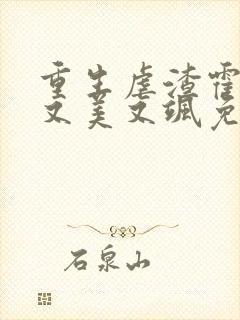 重生虐渣霍
又美又飒免
石泉山